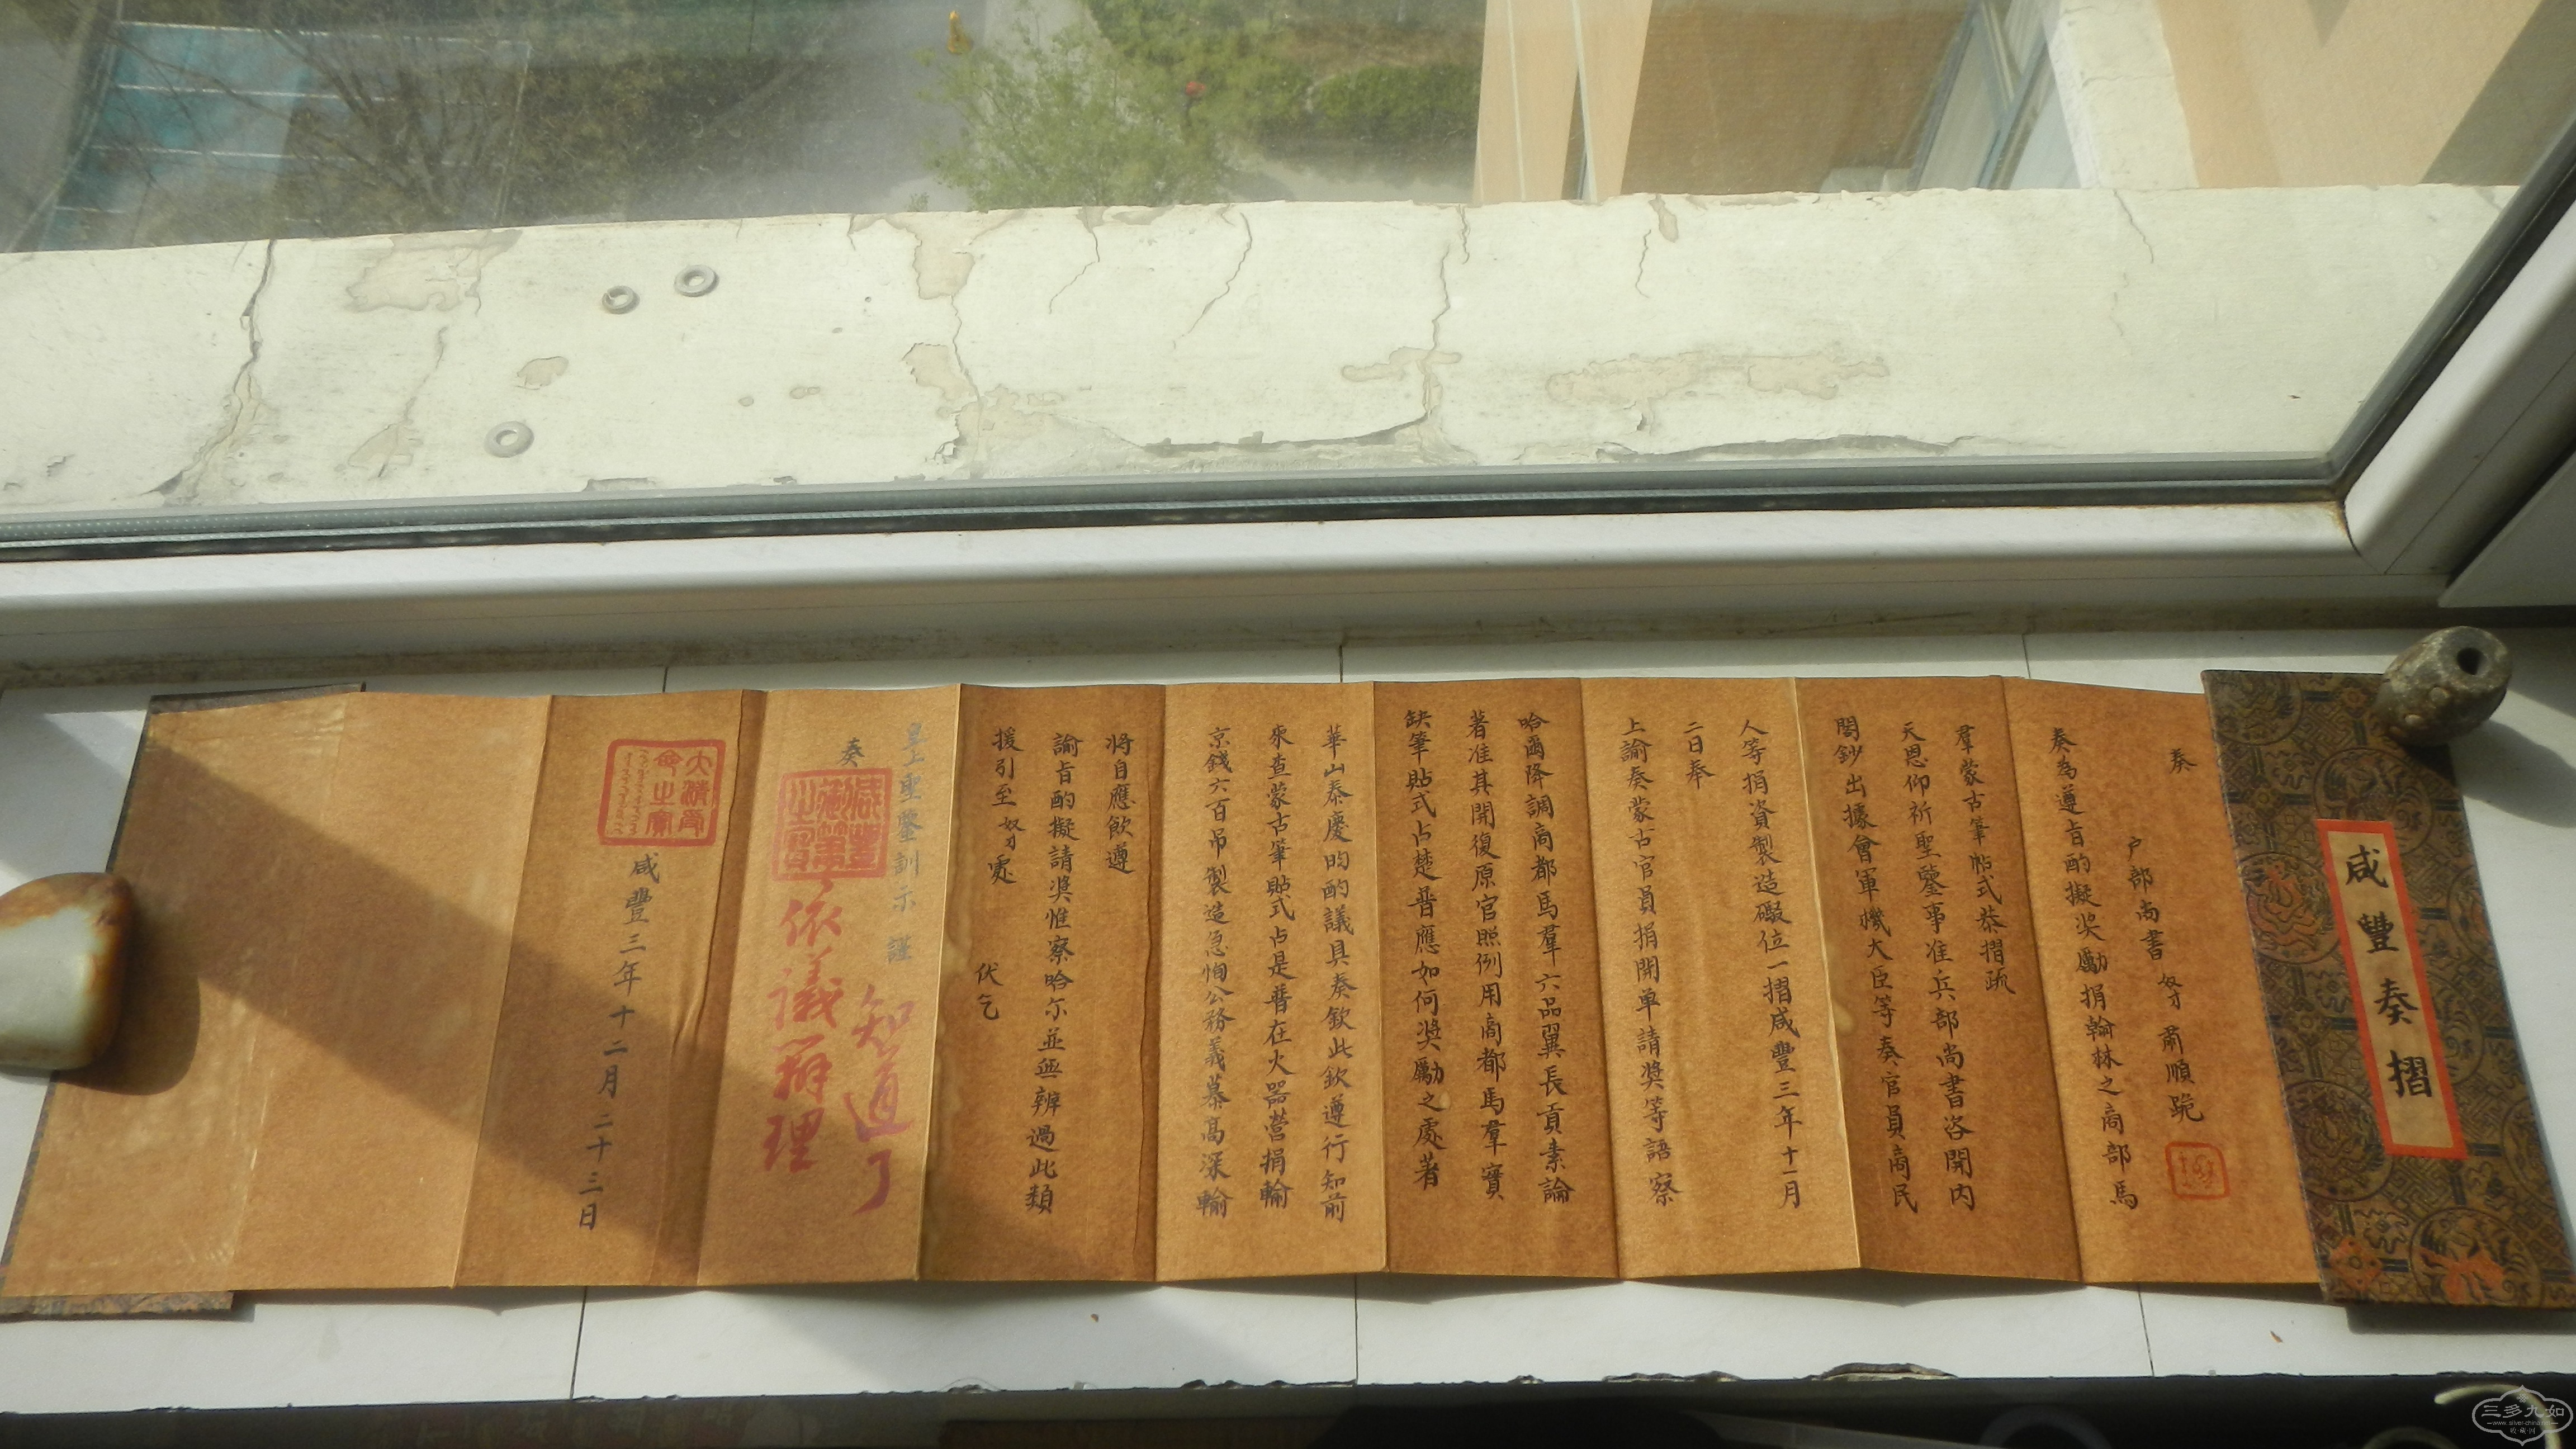 咸豐奏摺
奏
户部尚書 奴才 肅順跪
奏為遵旨酌擬奖勵捐輸林之商部馬
羣蒙古筆帖式恭摺疏
天恩仰祈聖鑒事准兵部尚書咨開内
閣鈔出據會軍機大臣等奏官員商民
人等捐資製造礮位一摺咸豐三年十一月
二日奉
上諭奏蒙古官員捐開单請奖等語察
哈爾降調商都馬羣六品翼長貢素論
著准其開復原官照例用商都馬羣實
缺筆貼式占楚普應如何奖勵之處著
華山泰慶昀酌議具奏欽此欽遵行知前
來查蒙古筆貼式占是普在火器营捐輸
京錢六百吊製造急恂公務義慕高深輸
將自應飲遵
諭旨酌擬請奖惟察哈尔並無辨過此類
援引至奴才處 伏乞
皇上聖鑒訓示 謹
奏
知道了
咸豐御筆之寳
依議辦理
大清受命之寳
咸豐三年十二月二十三日
三多九如
www.silver-china.net
收·藏·网